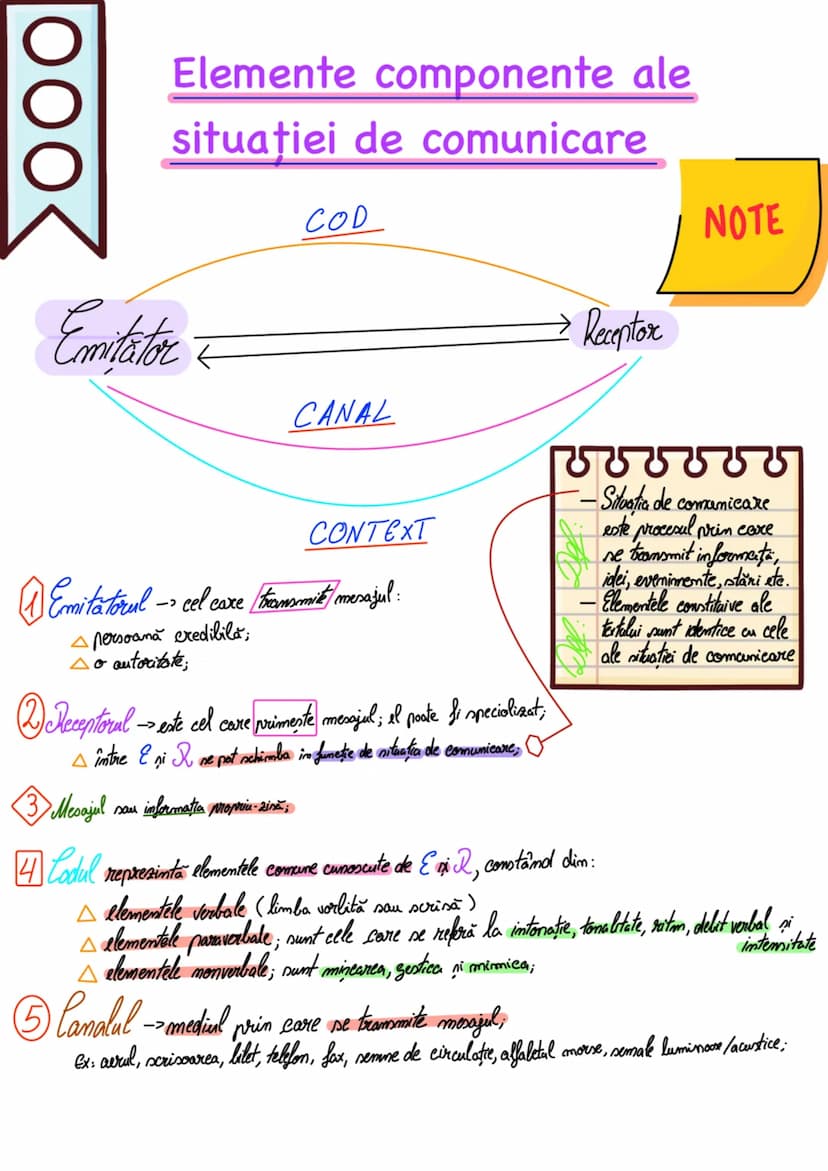 Elemente componente ale
situației de comunicare
NOTE
COD
Emițător
Receptor
CANAL
CONTEXT
Def:
– Situația de comunicare
este procesul prin care
se transmit informații,
idei, evenimente, stări etc.
Def:
– Elementele constituive ale
textului sunt identice cu cele
ale situației de comunicare
1 Emițătorul -> cel care transmite mesajul:
△ persoană credibilă;
△ o autoritate;
2 Receptorul -> este cel care primește mesajul; el poate fi specializat;
△ între E și R se pot schimba în funcție de situația de comunicare;
3 Mesajul sau informația propriu-zisă;
4 Codul reprezintă elementele comune cunoscute de E și R, constând din:
△ elementele verbale (limba vorbită sau scrisă)
△ elementele paraverbale; sunt cele care se referă la intonație, tonalitate, ritm, debit verbal și
intensitate
△ elementele nonverbale; sunt mișcarea, gestica și mimica;
5 Canalul -> mediul prin care se transmite mesajul;
Ex: aerul, scrisoarea, bilet, telefon, fax, semne de circulație, alfabetul morse, semale luminoase/acustice;